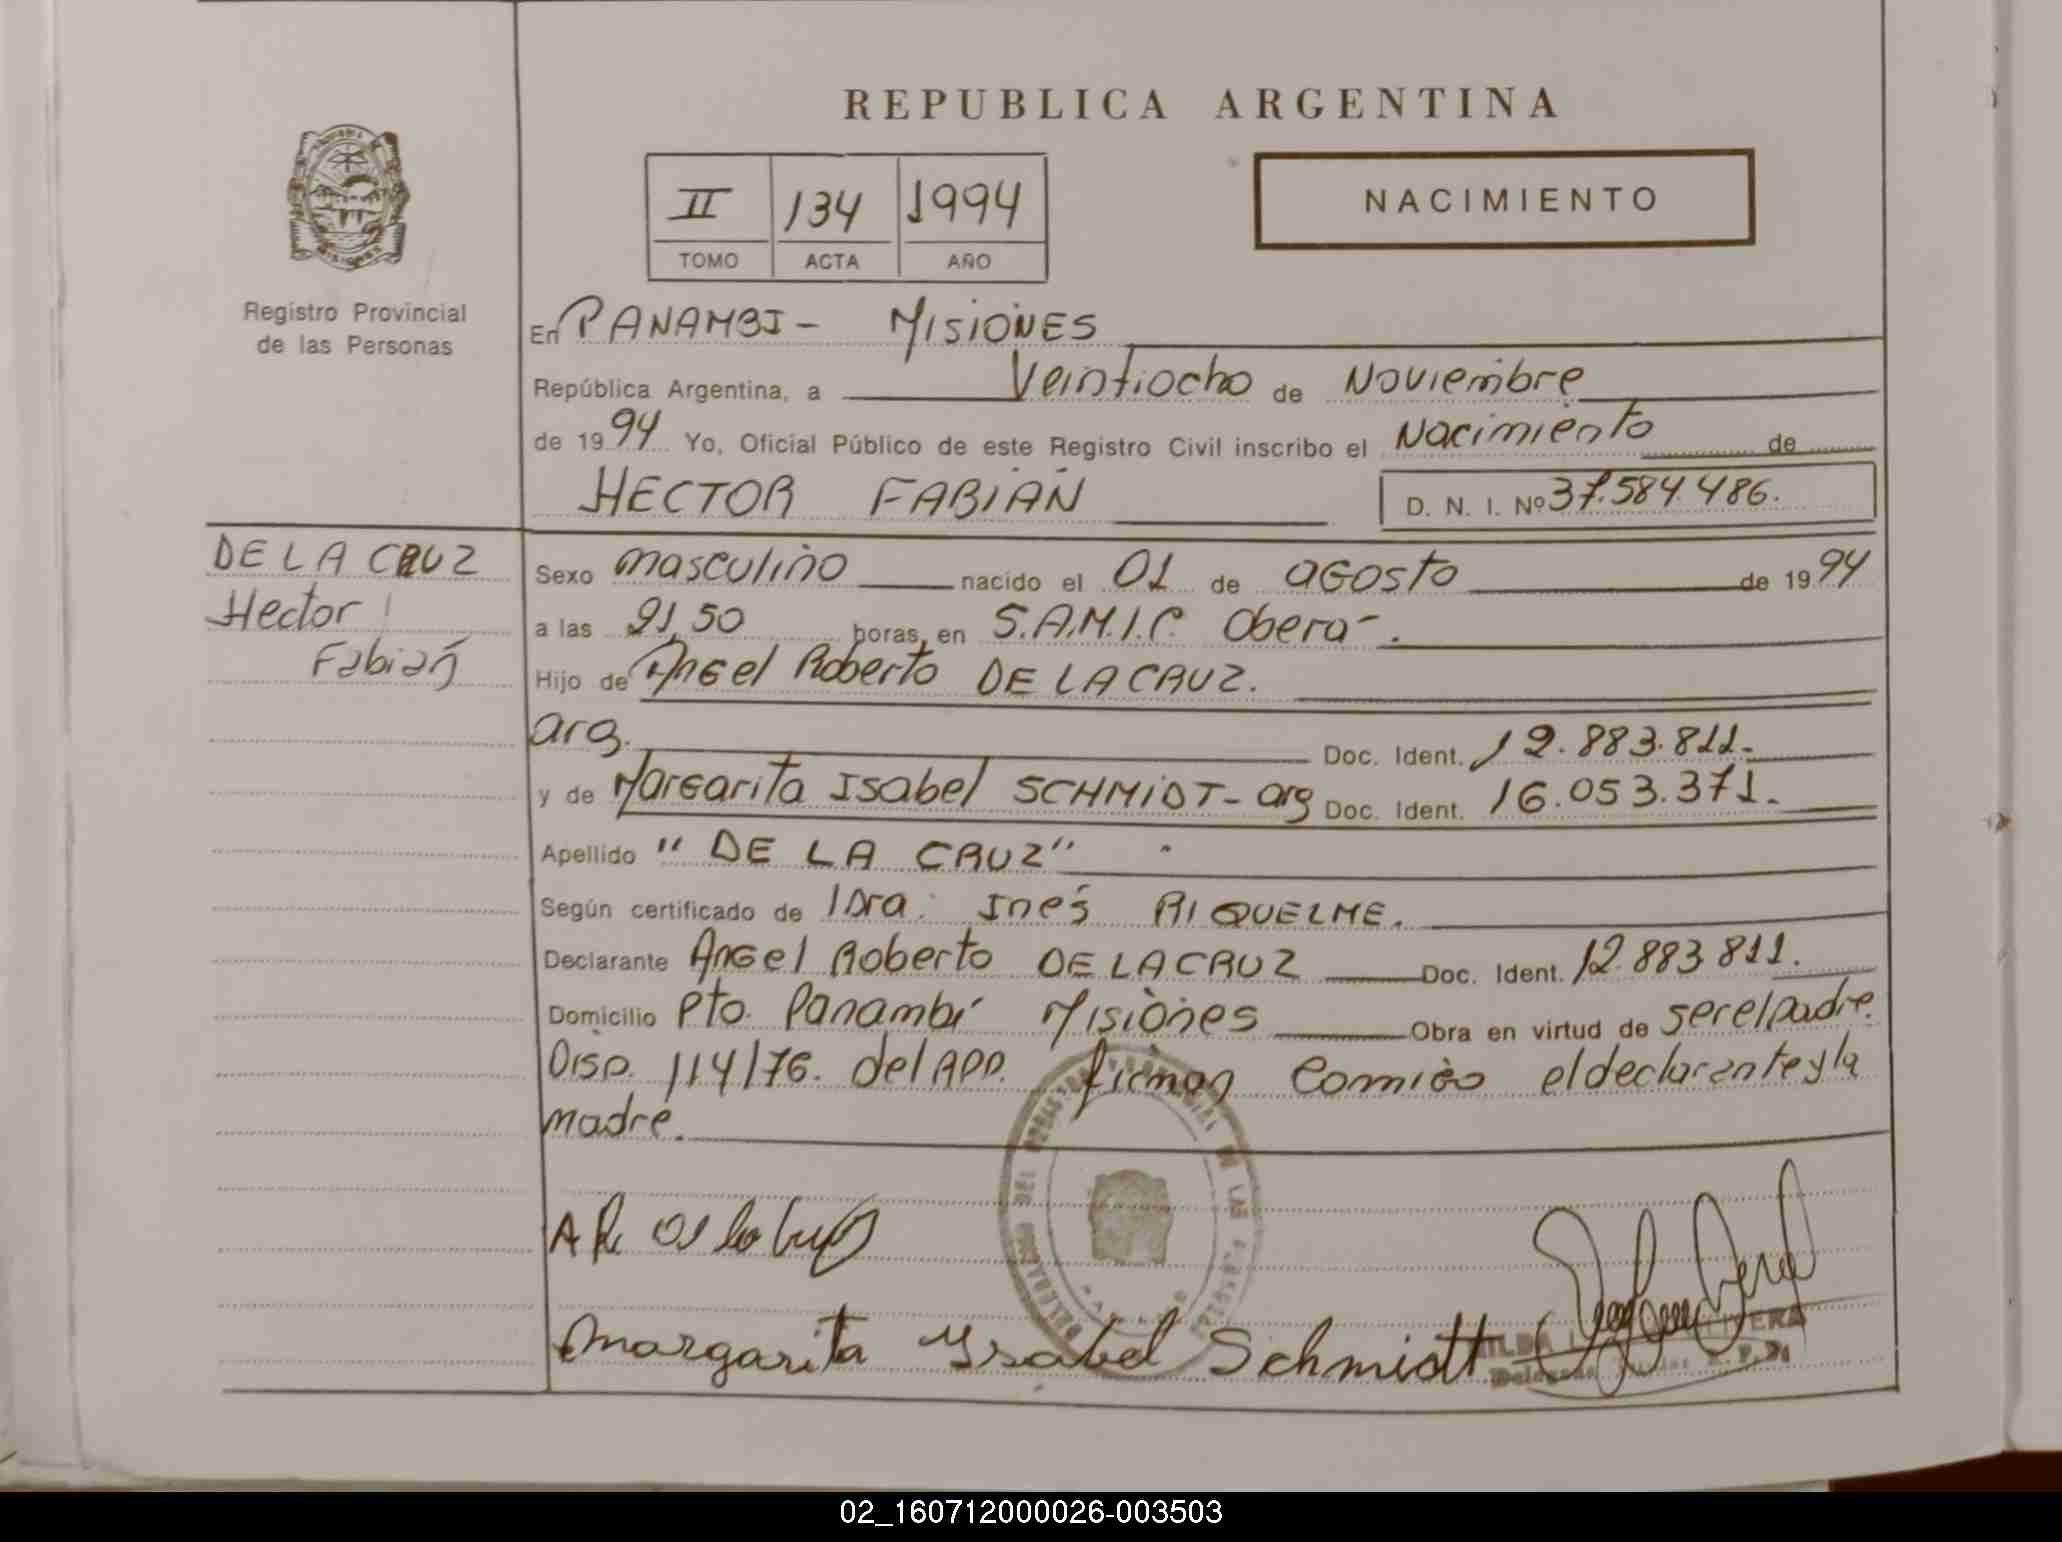 REPUBLICA ARGENTINA
II 134 1994
TOMO ACTA AÑO
NACIMIENTO
Registro Provincial
de las Personas
En PANAMBI - MISIONES
República Argentina, a Veintiocho de Noviembre
de 1994 Yo, Oficial Público de este Registro Civil inscribo el Nacimiento de
HECTOR FABIÁN D. N. I. Nº 37.584.486.
DE LA CRUZ
Hector
Fabián
Sexo masculino nacido el 01 de agosto de 1994
a las 21,50 horas, en S.A.M.I.C. Obera-.
Hijo de Angel Roberto DE LA CRUZ.
arg. Doc. Ident. 12.883.811.-
y de Margarita Isabel SCHMIDT - arg Doc. Ident. 16.053.371.-
Apellido "DE LA CRUZ"
Según certificado de Dra: Inés RIQUELME.
Declarante Angel Roberto DE LA CRUZ Doc. Ident. 12.883.811.
Domicilio Pto. Panambí Misiones Obra en virtud de ser el padre.
Disp. 114/76. del firman Conmigo el declarante y la
madre.
Margarita Ysabel Schmidt
02_160712000026-003503